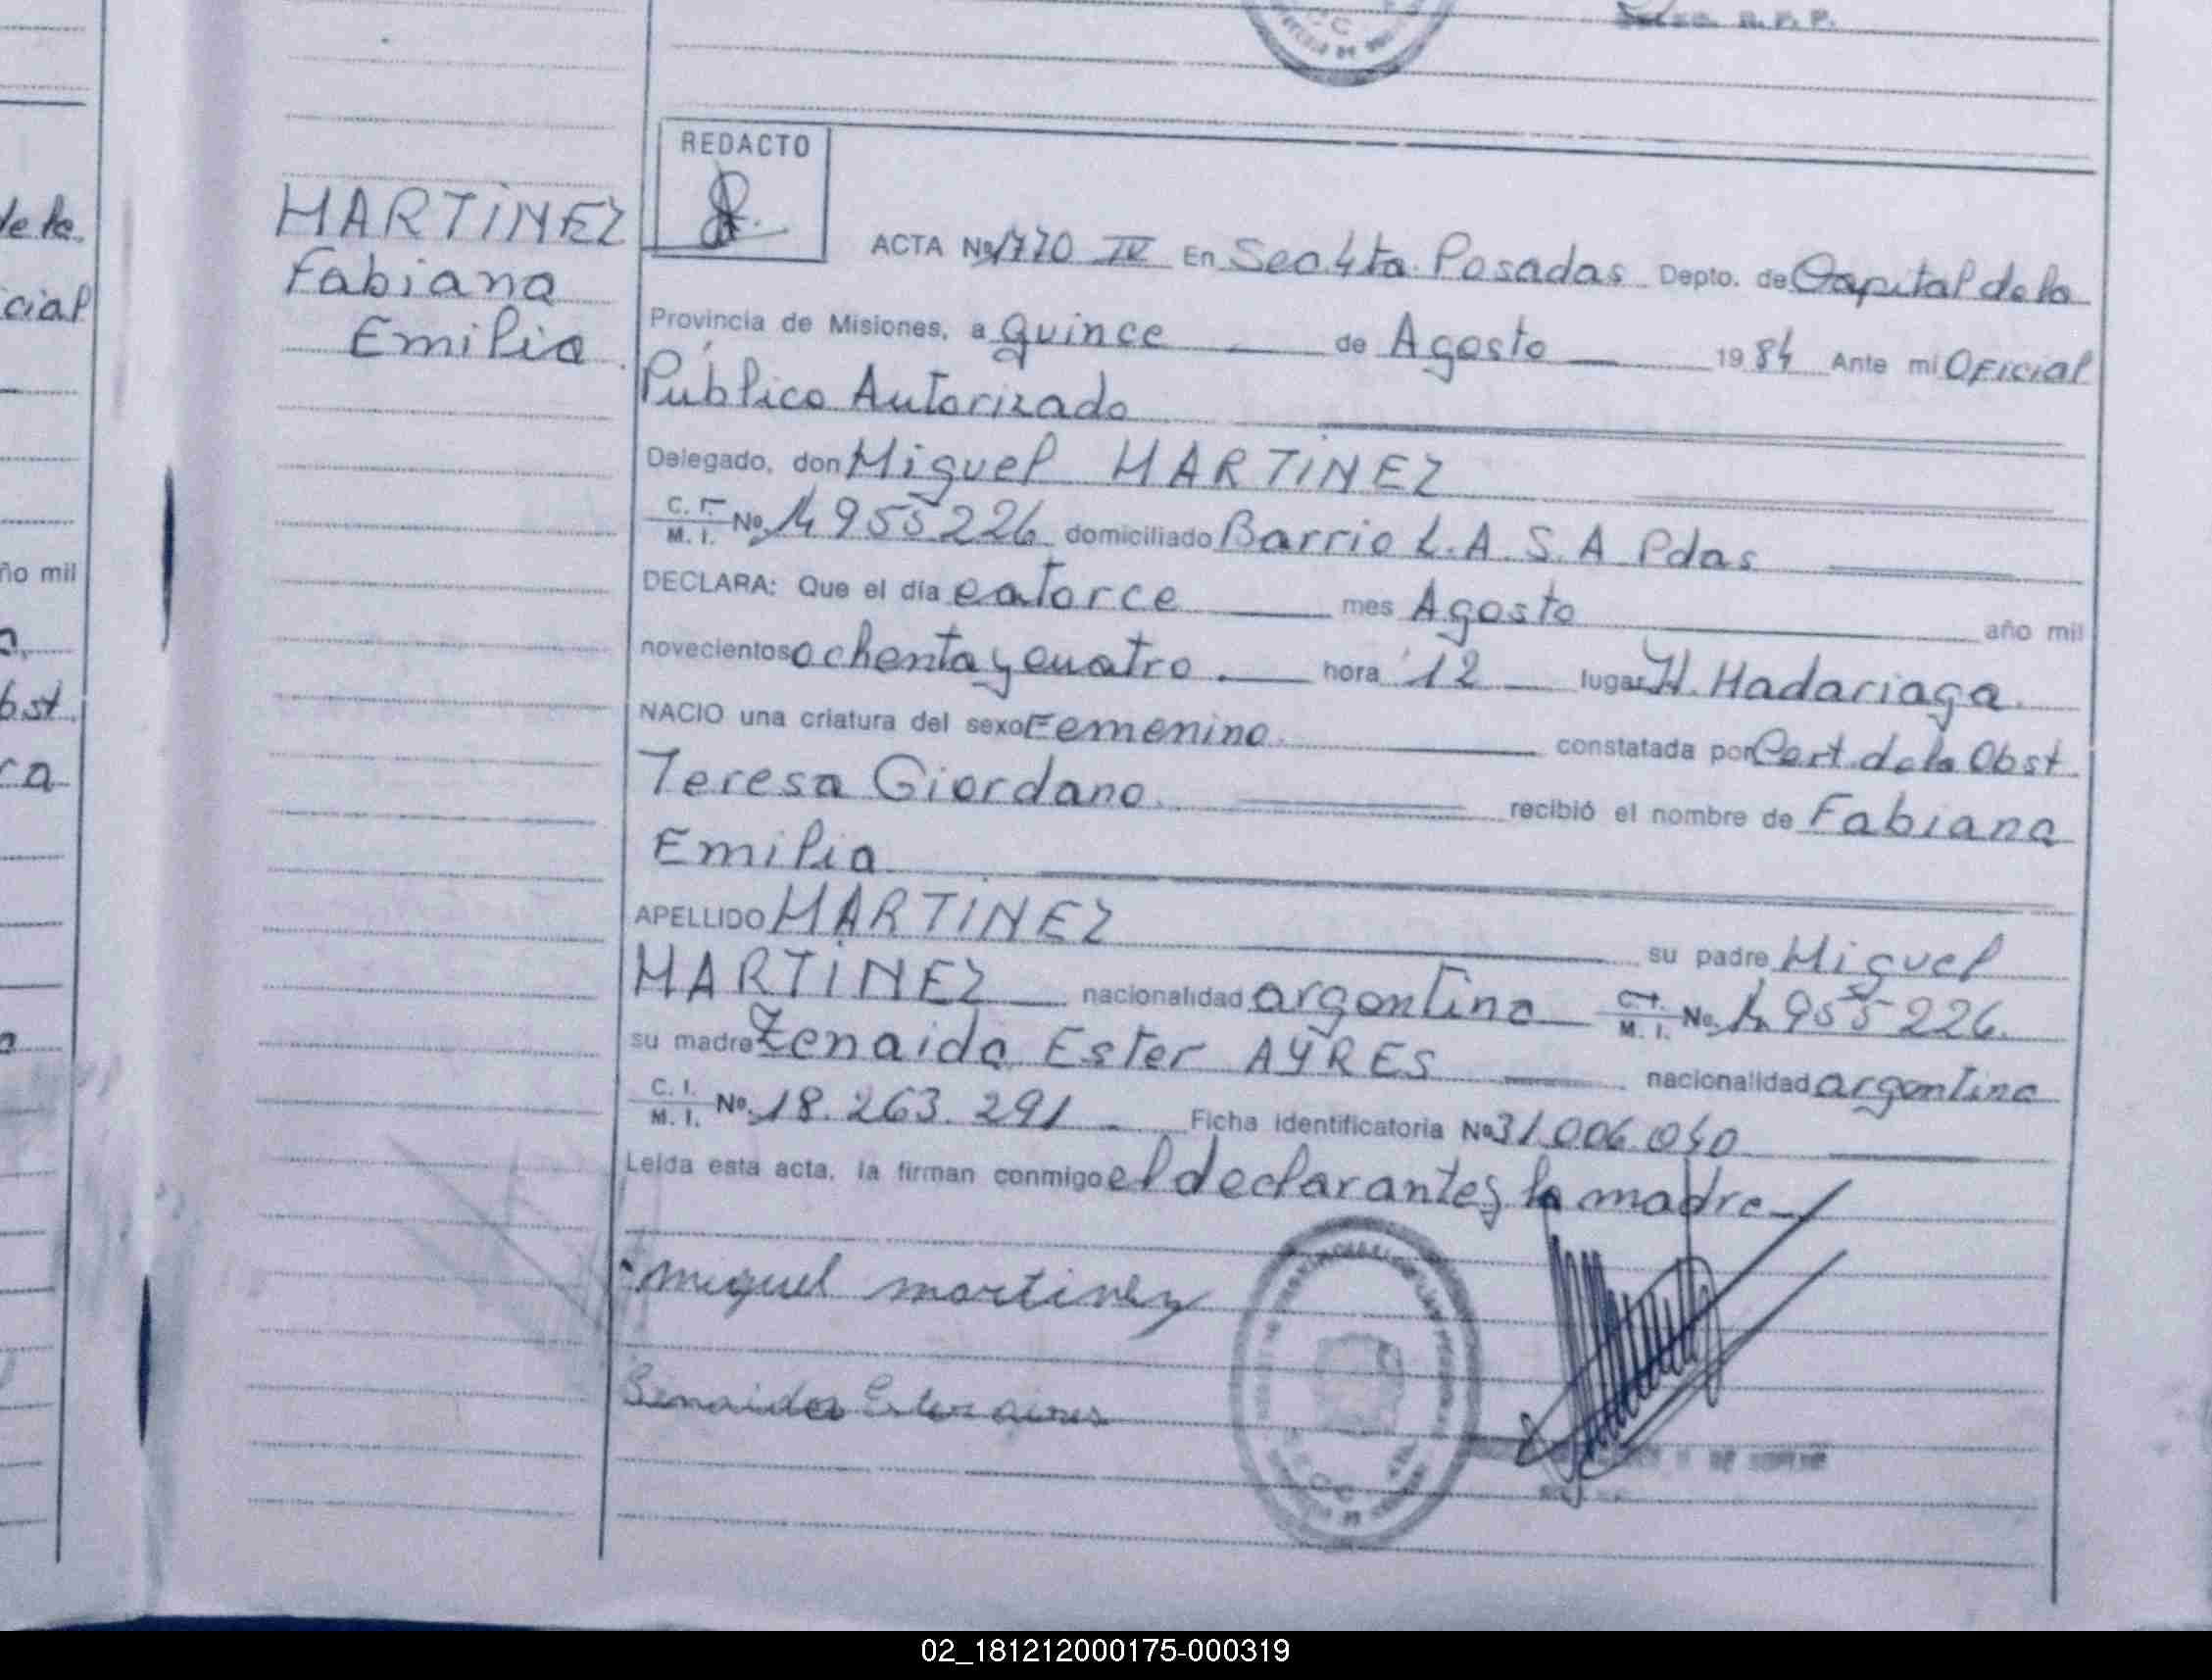 R. P. P.
REDACTO
MARTINEZ
Fabiana
Emilia
ACTA Nº 1770 IV En Sec 4ta Posadas Depto. de Capital de la
Provincia de Misiones, a quince de Agosto 1984 Ante mi Oficial
Público Autorizado
Delegado, don Miguel MARTINEZ
C. I. M. I. Nº 14955226 domiciliado Barrio L.A.S.A Pdas
DECLARA: Que el día catorce mes Agosto año mil
novecientos ochenta y cuatro hora 12 lugar H. Madariaga.
NACIO una criatura del sexo Femenino. constatada por Cert. de la Obst.
Teresa Giordano. recibió el nombre de Fabiana
Emilia
APELLIDO MARTINEZ su padre Miguel
MARTINEZ nacionalidad argentina C. I. M. I. Nº 14955226.
su madre Zenaida Ester AYRES nacionalidad argentina
C. I. M. I. Nº 18.263.291 Ficha identificatoria Nº 31.006.040
Leida esta acta, la firman conmigo el declarante y la madre
miguel martinez
Senaida Ester aires
de la.
cial
ño mil
obst.
ra
02_181212000175-000319